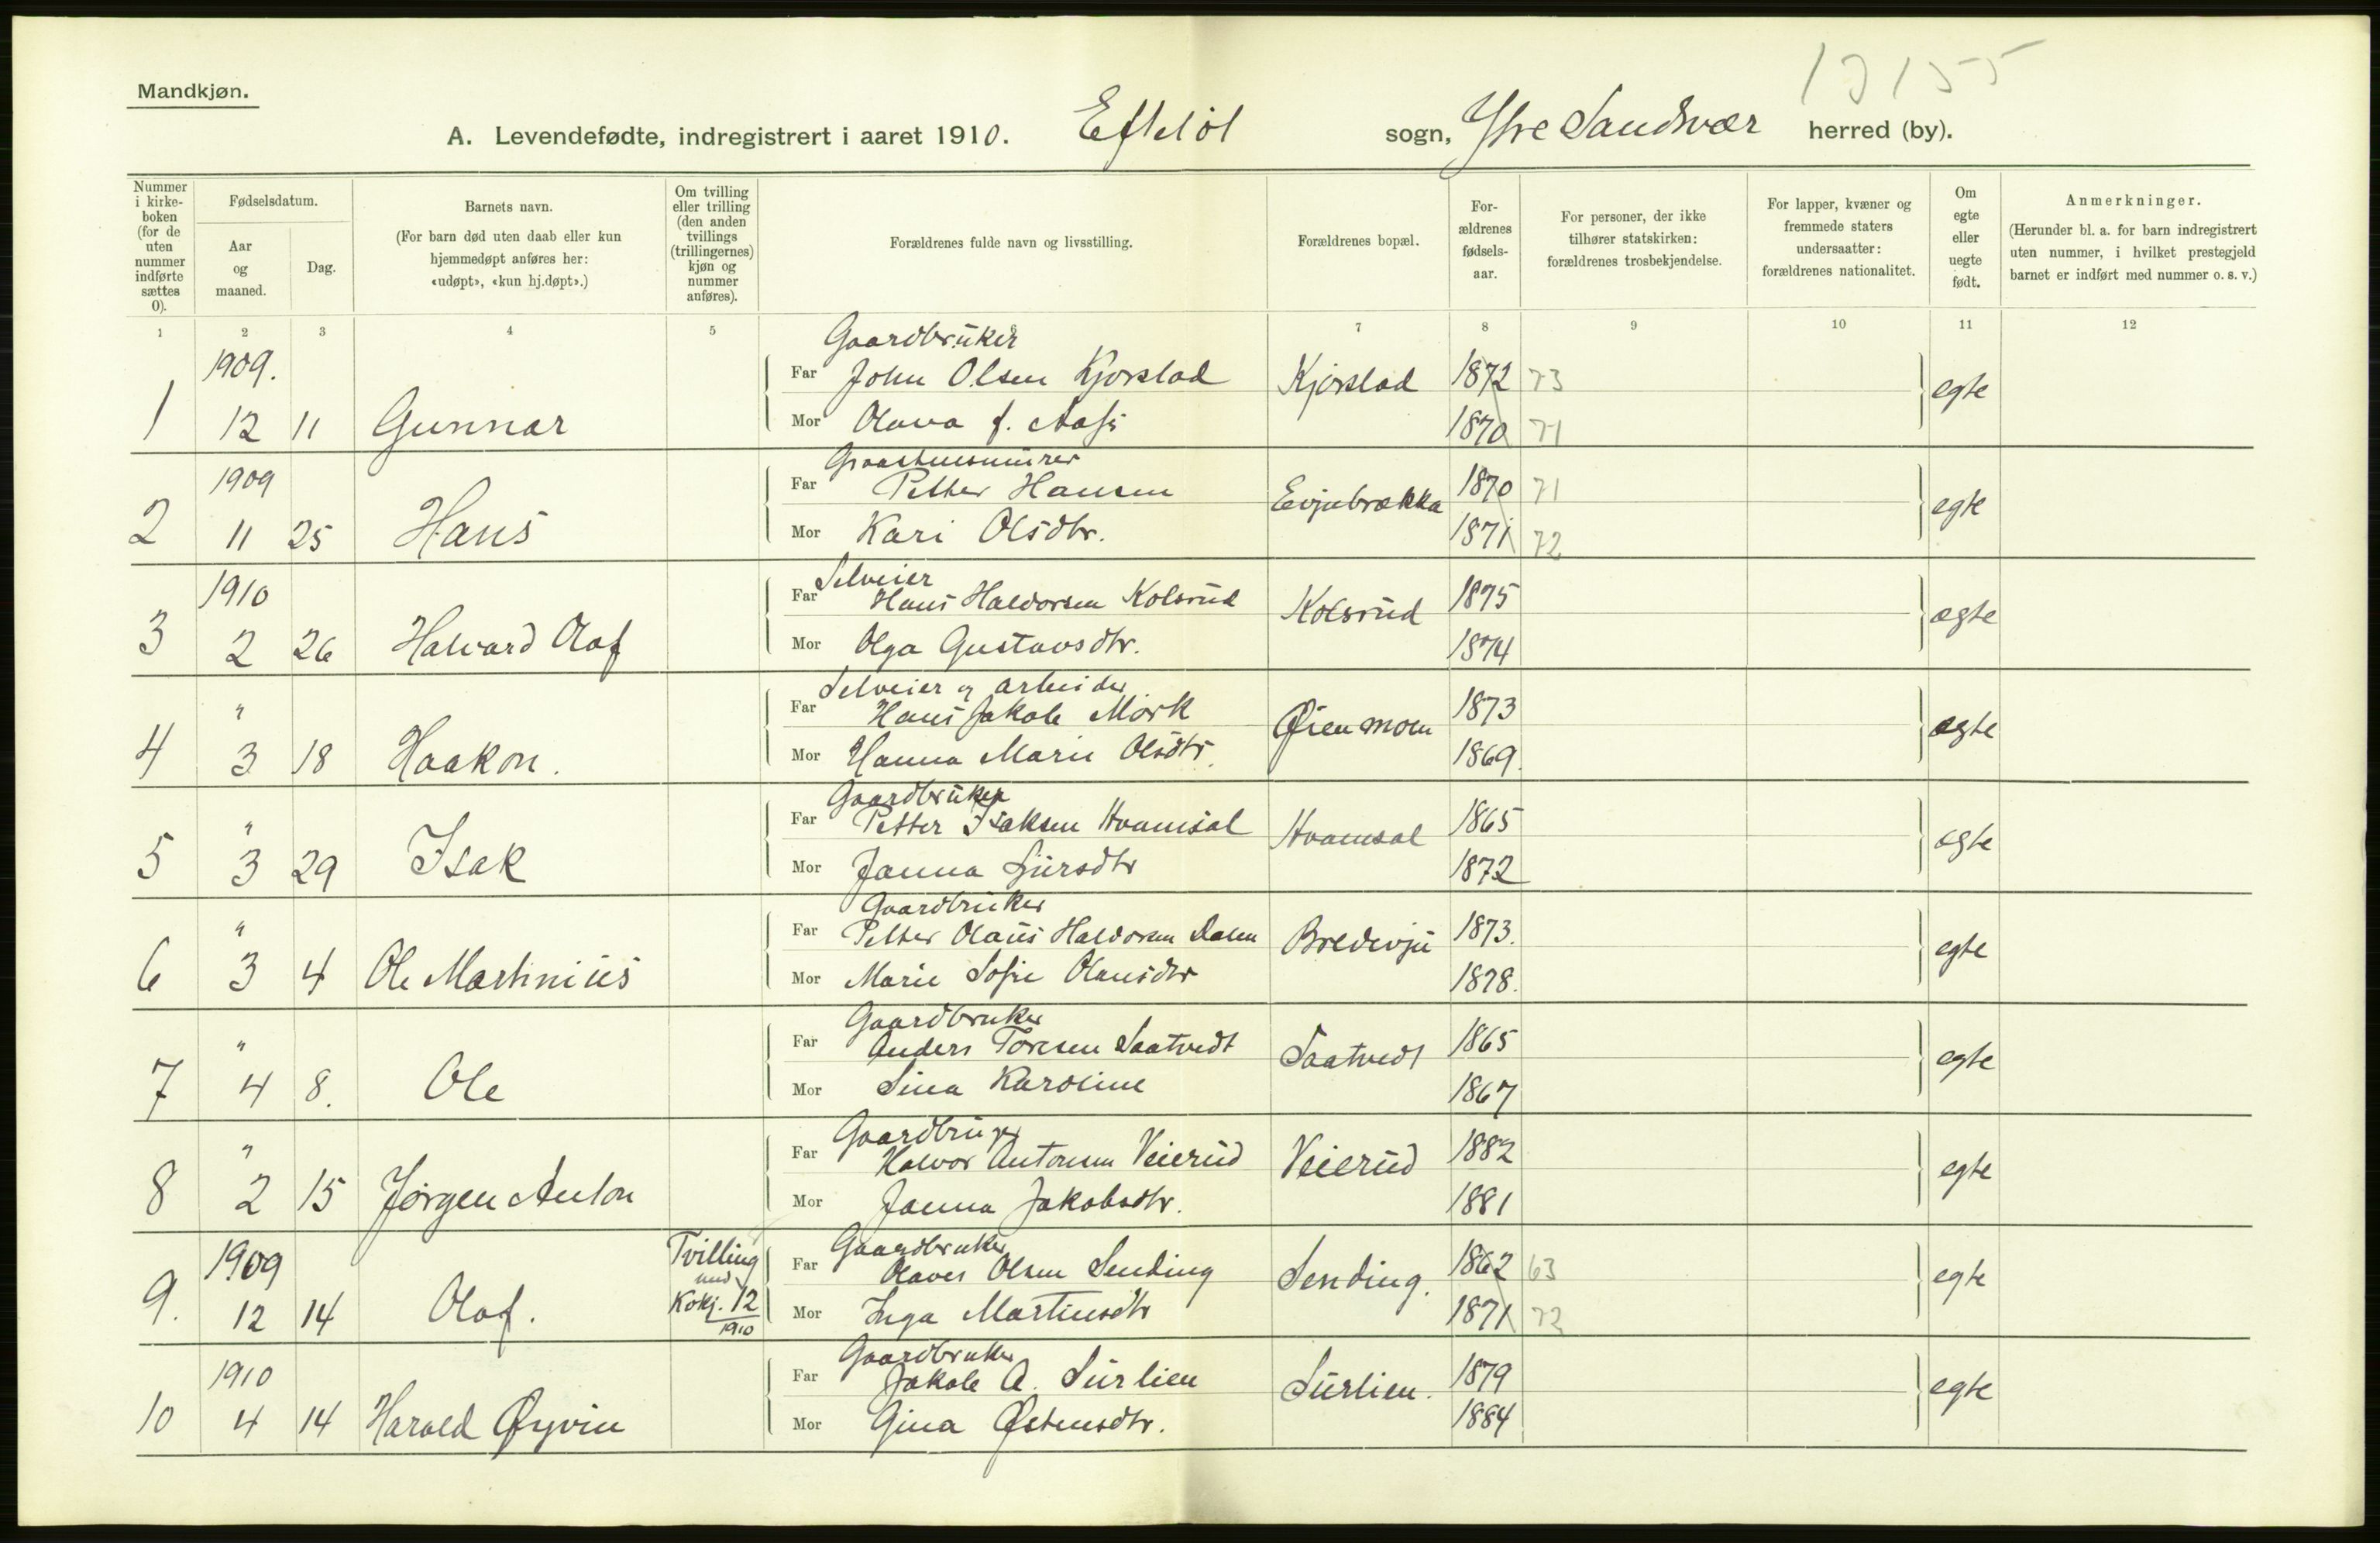 Mandkjøn.
13155
A. Levendefødte, indregistrert i aaret 1910. Efteløt sogn, Ytre Sandsvær herred (by).
Nummer i kirke-boken (for de uten nummer indførte sættes 0).
Fødselsdatum.
Aar og maaned.
Dag.
Barnets navn.
(For barn død uten daab eller kun hjemmedøpt anføres her: «udøpt», «kun hj.døpt».)
Om tvilling eller trilling (den anden tvillings (trillingernes) kjøn og nummer anføres).
Forældrenes fulde navn og livsstilling.
Forældrenes bopæl.
For-ældrenes fødsels-aar.
For personer, der ikke tilhører statskirken: forældrenes trosbekjendelse.
For lapper, kvæner og fremmede staters undersaatter: forældrenes nationalitet.
Om egte eller uegte født.
Anmerkninger.
(Herunder bl. a. for barn indregistrert uten nummer, i hvilket prestegjeld barnet er indført med nummer o. s. v.)
1 2 3 4 5 6 7 8 9 10 11 12
1909.
Gaardbruker
Far John Olsen Kjørstad Kjørstad 1872 73
1 12 11 Gunnar egte
Mor Olava f. Aasi 1870 71
1909
Graastensmurer
Far Petter Hansen Evjubrækka 1870 71
2 11 25 Hans egte
Mor Kari Olsdtr. 1871 72
1910
Selveier
Far Hans Haldorsen Kolsrud Kolsrud 1875
3 2 26 Halvard Olaf ægte
Mor Olga Gustavsdtr. 1874
"
Selveier og arbeider
Far Hans Jakob Mørk Øienmoen 1873
4 3 18 Haakon. ægte
Mor Hanna Marie Olsdtr. 1869.
"
Gaardbruker
Far Petter Isaksen Hvamsal Hvamsal 1865
5 3 29 Isak egte
Mor Janna Sjursdtr 1872
"
Gaardbruker
Far Petter Olaus Haldorsen Dalen Bredevju 1873.
6 3 4 Ole Martinius egte
Mor Marie Sofie Olausdtr 1878.
"
Gaardbruker
Far Anders Toresen Saatvedt Saatvedt 1865
7 4 8. Ole egte
Mor Sina Karoline 1867
"
Gaardbruger
Far Halvor Antonsen Veierud Veierud 1882
8 2 15 Jørgen Anton egte
Mor Janna Jakobsdtr. 1881
1909
Tvilling med Kvkj. 12 1910
Gaardbruker
Far Olaves Olsen Sending Sending. 1862 63
9. 12 14 Olaf. egte
Mor Inga Martinsdtr 1871 72
1910
Gaardbruker
Far Jakob A. Surlien Surlien. 1879
10 4 14 Harald Øyvin egte
Mor Gina Østensdtr. 1884